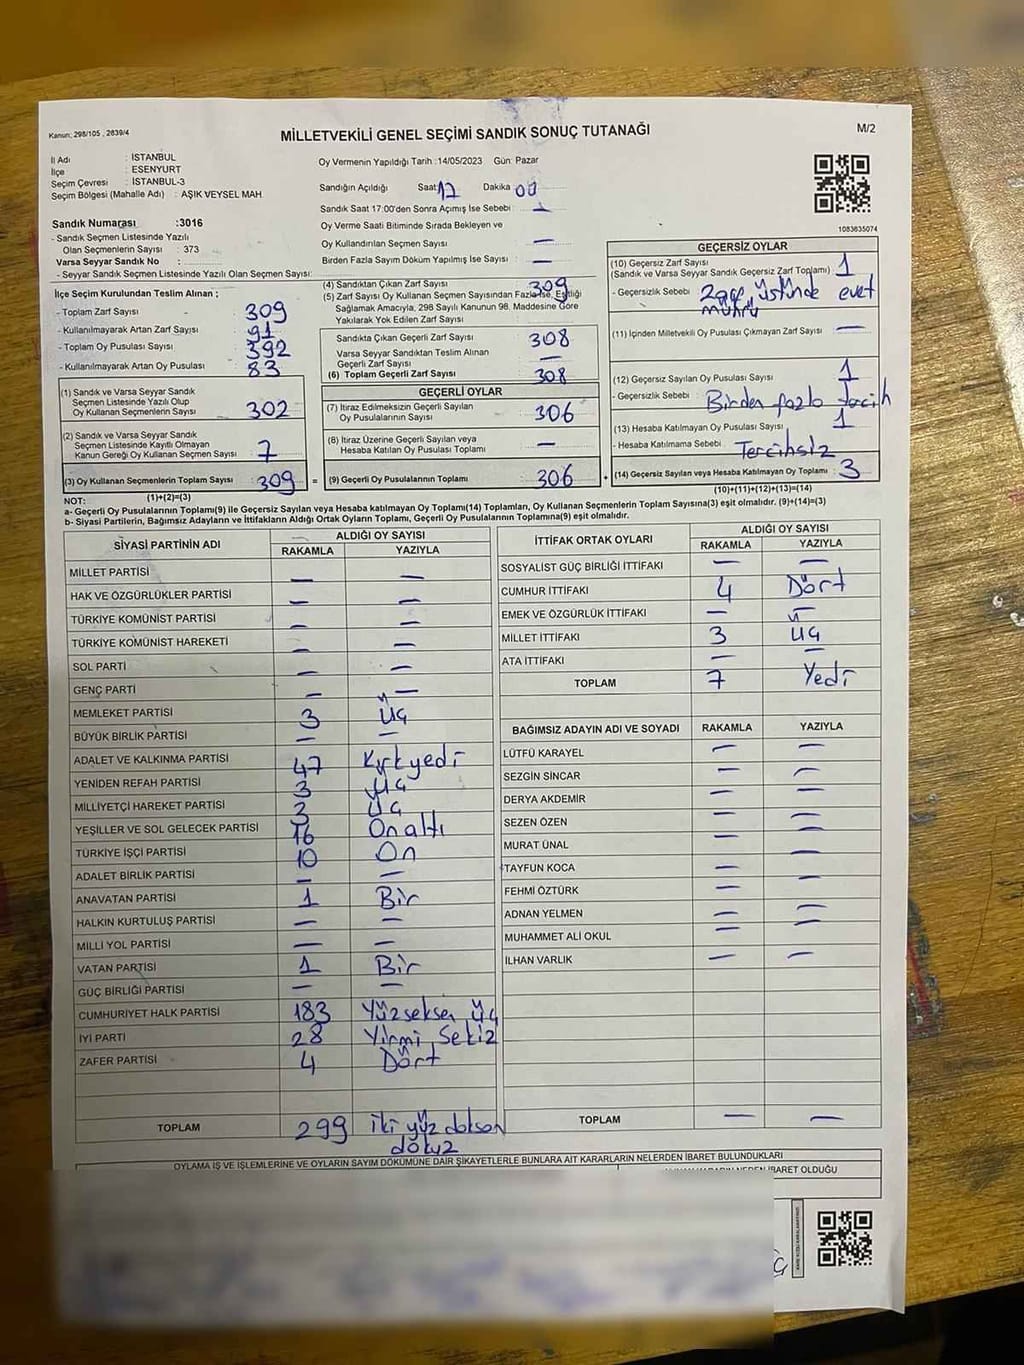 Kanun; 298/105 , 2839/4
MİLLETVEKİLİ GENEL SEÇİMİ SANDIK SONUÇ TUTANAĞI
M/2
İl Adı : İSTANBUL
İlçe : ESENYURT
Seçim Çevresi : İSTANBUL-3
Seçim Bölgesi (Mahalle Adı) : AŞIK VEYSEL MAH
Sandık Numarası :3016
- Sandık Seçmen Listesinde Yazılı
Olan Seçmenlerin Sayısı : 373
Varsa Seyyar Sandık No :
- Seyyar Sandık Seçmen Listesinde Yazılı Olan Seçmen Sayısı:
Oy Vermenin Yapıldığı Tarih :14/05/2023 Gün: Pazar
Sandığın Açıldığı Saat 17 Dakika 00
Sandık Saat 17:00'den Sonra Açımış İse Sebebi : —
Oy Verme Saati Bitiminde Sırada Bekleyen ve
Oy Kullandırılan Seçmen Sayısı —
Birden Fazla Sayım Döküm Yapılmış İse Sayısı : —
1083635074
İlçe Seçim Kurulundan Teslim Alınan ;
- Toplam Zarf Sayısı : 309
- Kullanılmayarak Artan Zarf Sayısı : 91
- Toplam Oy Pusulası Sayısı : 392
- Kullanılmayarak Artan Oy Pusulası : 83
(1) Sandık ve Varsa Seyyar Sandık
Seçmen Listesinde Yazılı Olup
Oy Kullanan Seçmenlerin Sayısı : 302
(2) Sandık ve Varsa Seyyar Sandık
Seçmen Listesinde Kayıtlı Olmayan
Kanun Gereği Oy Kullanan Seçmen Sayısı : 7
(3) Oy Kullanan Seçmenlerin Toplam Sayısı : 309
(4) Sandıktan Çıkan Zarf Sayısı : 309
(5) Zarf Sayısı Oy Kullanan Seçmen Sayısından Fazla İse, Eşitliği
Sağlamak Amacıyla, 298 Sayılı Kanunun 98. Maddesine Göre
Yakılarak Yok Edilen Zarf Sayısı
Sandıkta Çıkan Geçerli Zarf Sayısı : 308
Varsa Seyyar Sandıktan Teslim Alınan
Geçerli Zarf Sayısı : —
(6) Toplam Geçerli Zarf Sayısı : 308
GEÇERLİ OYLAR
(7) İtiraz Edilmeksizin Geçerli Sayılan
Oy Pusulalarının Sayısı : 306
(8) İtiraz Üzerine Geçerli Sayılan veya
Hesaba Katılan Oy Pusulası Toplamı : —
= (9) Geçerli Oy Pusulalarının Toplamı : 306 +
GEÇERSİZ OYLAR
(10) Geçersiz Zarf Sayısı
(Sandık ve Varsa Seyyar Sandık Geçersiz Zarf Toplamı) : 1
- Geçersizlik Sebebi : Zarf üstünde evet
mührü
(11) İçinden Milletvekili Oy Pusulası Çıkmayan Zarf Sayısı : —
(12) Geçersiz Sayılan Oy Pusulası Sayısı : 1
- Geçersizlik Sebebi : Birden fazla tercih
(13) Hesaba Katılmayan Oy Pusulası Sayısı : 1
- Hesaba Katılmama Sebebi : Tercihsiz
(14) Geçersiz Sayılan veya Hesaba Katılmayan Oy Toplamı : 3
NOT: (1)+(2)=(3)
(10)+(11)+(12)+(13)=(14)
a- Geçerli Oy Pusulalarının Toplamı(9) ile Geçersiz Sayılan veya Hesaba katılmayan Oy Toplamı(14) Toplamları, Oy Kullanan Seçmenlerin Toplam Sayısına(3) eşit olmalıdır. (9)+(14)=(3)
b- Siyasi Partilerin, Bağımsız Adayların ve İttifakların Aldığı Ortak Oyların Toplamı, Geçerli Oy Pusulalarının Toplamına(9) eşit olmalıdır.
SİYASİ PARTİNİN ADI ALDIĞI OY SAYISI
RAKAMLA YAZIYLA
MİLLET PARTİSİ — —
HAK VE ÖZGÜRLÜKLER PARTİSİ — —
TÜRKİYE KOMÜNİST PARTİSİ — —
TÜRKİYE KOMÜNİST HAREKETİ — —
SOL PARTİ — —
GENÇ PARTİ — —
MEMLEKET PARTİSİ 3 üç
BÜYÜK BİRLİK PARTİSİ — —
ADALET VE KALKINMA PARTİSİ 47 Kırkyedi
YENİDEN REFAH PARTİSİ 3 üç
MİLLİYETÇİ HAREKET PARTİSİ 3 üç
YEŞİLLER VE SOL GELECEK PARTİSİ 16 Onaltı
TÜRKİYE İŞÇİ PARTİSİ 10 On
ADALET BİRLİK PARTİSİ — —
ANAVATAN PARTİSİ 1 Bir
HALKIN KURTULUŞ PARTİSİ — —
MİLLİ YOL PARTİSİ — —
VATAN PARTİSİ 1 Bir
GÜÇ BİRLİĞİ PARTİSİ — —
CUMHURİYET HALK PARTİSİ 183 Yüzseksen üç
İYİ PARTİ 28 Yirmi Sekiz
ZAFER PARTİSİ 4 Dört
TOPLAM 299 iki yüz doksan
dokuz
İTTİFAK ORTAK OYLARI ALDIĞI OY SAYISI
RAKAMLA YAZIYLA
SOSYALİST GÜÇ BİRLİĞİ İTTİFAKI — —
CUMHUR İTTİFAKI 4 Dört
EMEK VE ÖZGÜRLÜK İTTİFAKI — —
MİLLET İTTİFAKI 3 üç
ATA İTTİFAKI — —
TOPLAM 7 Yedi
BAĞIMSIZ ADAYIN ADI VE SOYADI RAKAMLA YAZIYLA
LÜTFÜ KARAYEL — —
SEZGİN SİNCAR — —
DERYA AKDEMİR — —
SEZEN ÖZEN — —
MURAT ÜNAL — —
TAYFUN KOCA — —
FEHMİ ÖZTÜRK — —
ADNAN YELMEN — —
MUHAMMET ALİ OKUL — —
İLHAN VARLIK — —
TOPLAM — —
OYLAMA İŞ VE İŞLEMLERİNE VE OYLARIN SAYIM DÖKÜMÜNE DAİR ŞİKAYETLERLE BUNLARA AİT KARARLARIN NELERDEN İBARET BULUNDUKLARI
İBARET OLDUĞU